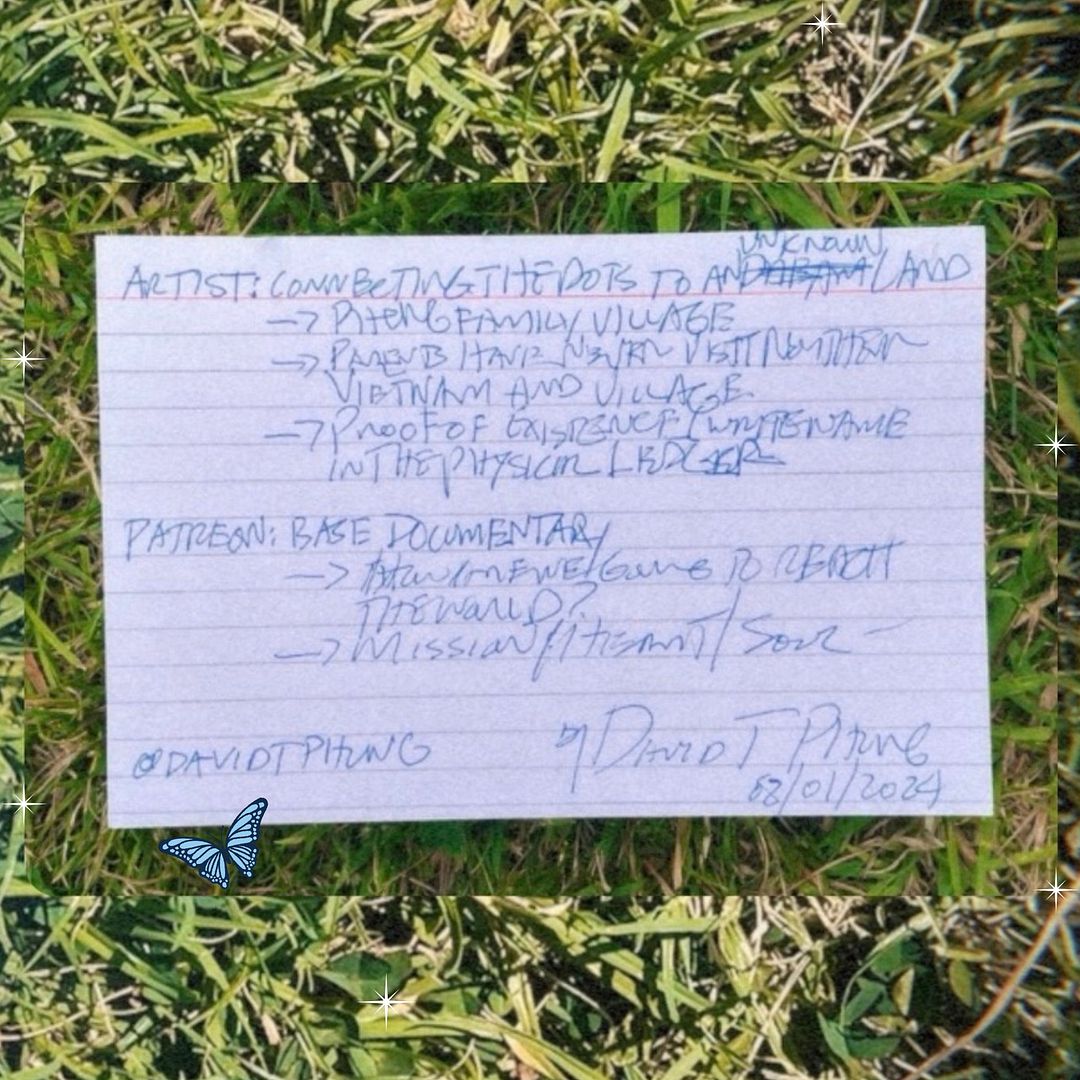 UNKNOWN
ARTIST: CONNECTING THE DOTS TO AN LAND
-> PHUNG FAMILY VILLAGE
-> PARENTS HAVE NEVER VISIT NORTHERN
VIETNAM AND VILLAGE
-> PROOF OF EXISTENCE / WRITE NAME
IN THE PHYSICAL LEDGER
PATREON: BASE DOCUMENTARY
-> HOW WE GOING TO
THE WORLD?
-> MISSION / HEART / SOUL -
@DAVIDTPHUNG
DAVID T PHUNG
08/01/2024